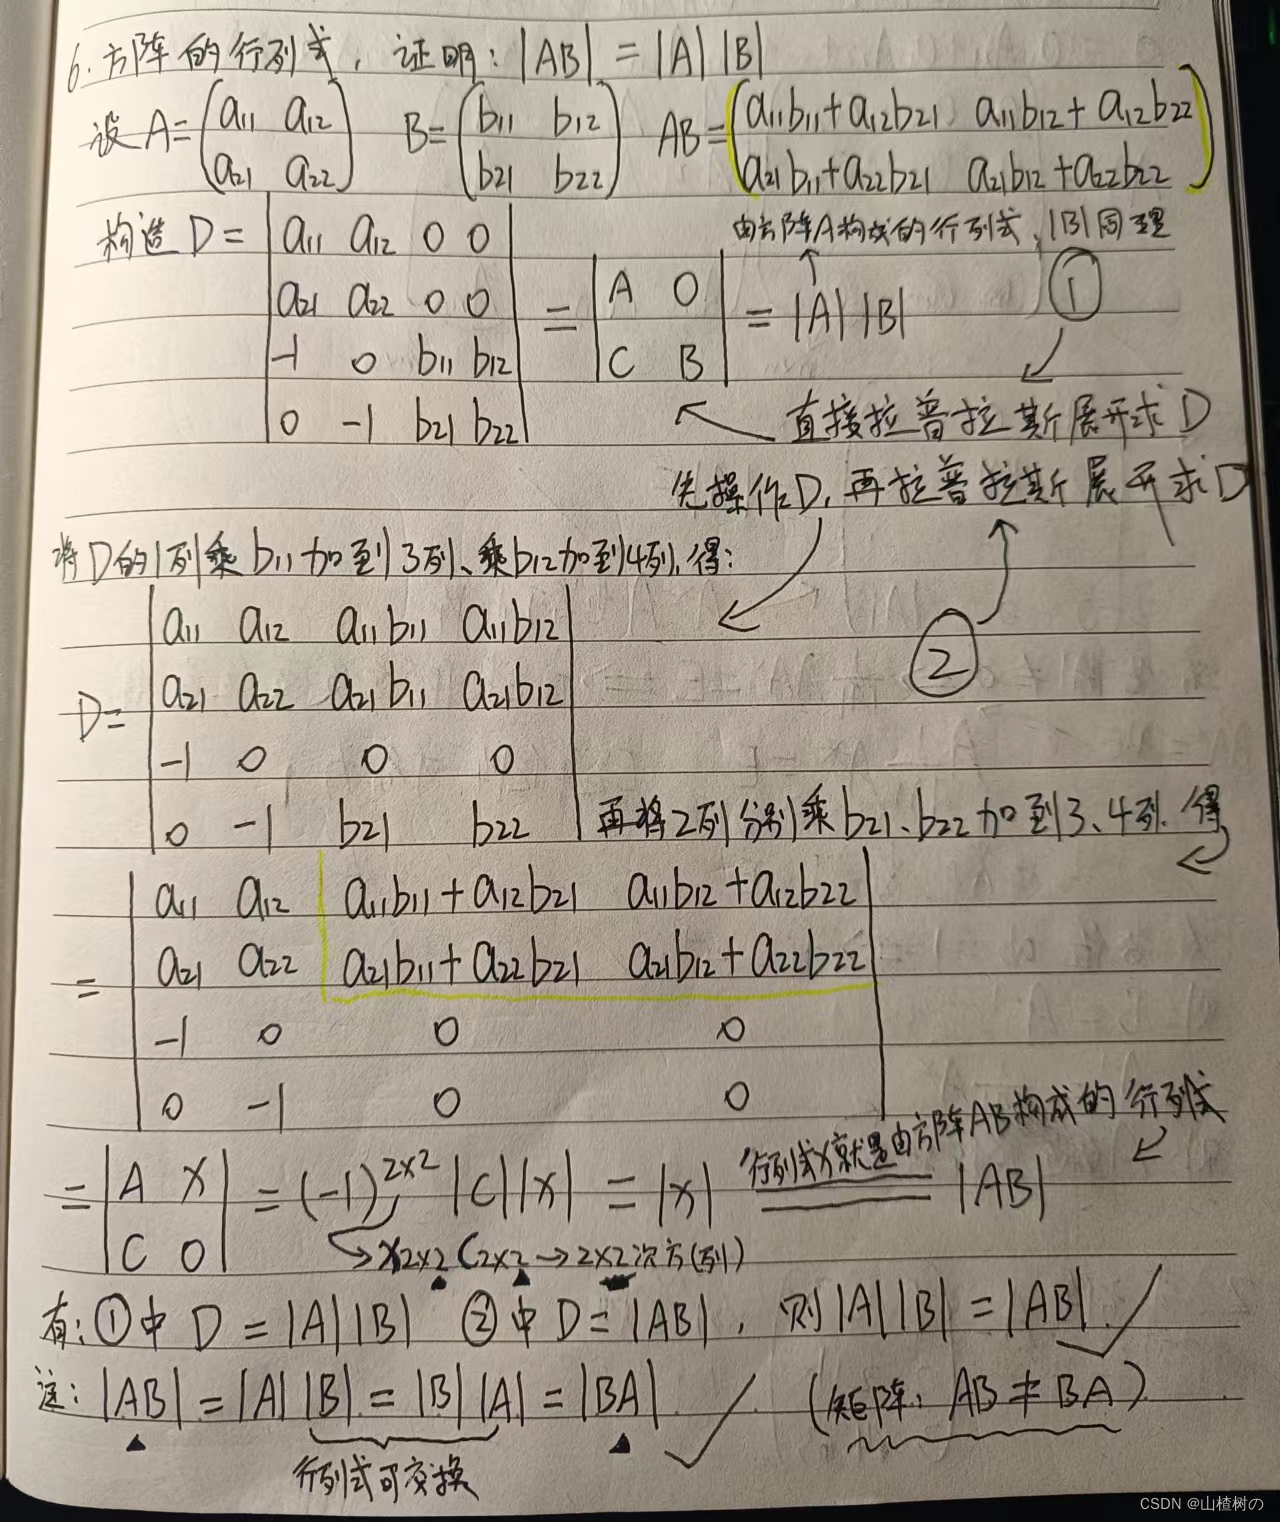 6. 方阵的行列式，证明：|AB| = |A| |B|
设 A = (a11 a12 B = (b11 b12 AB = (a11b11+a12b21 a11b12+a12b22
a21 a22) b21 b22) a21b11+a22b21 a21b12+a22b22)
由方阵A构成的行列式，|B|同理
①
构造 D = | a11 a12 0 0 |
| a21 a22 0 0 |
| -1 0 b11 b12 |
| 0 -1 b21 b22 |
= | A 0 | = |A| |B|
| C B |
直接拉普拉斯展开求D
先操作D，再拉普拉斯展开求D
②
将D的1列乘b11加到3列、乘b12加到4列，得：
D = | a11 a12 a11b11 a11b12 |
| a21 a22 a21b11 a21b12 |
| -1 0 0 0 |
| 0 -1 b21 b22 |
再将2列分别乘b21、b22加到3、4列，得
= | a11 a12 a11b11+a12b21 a11b12+a12b22 |
| a21 a22 a21b11+a22b21 a21b12+a22b22 |
| -1 0 0 0 |
| 0 -1 0 0 |
行列式X就是由方阵AB构成的行列式
= | A X | = (-1)^2×2 |C| |X| = |X| = |AB|
| C 0 |
X2×2 C2×2 → 2×2次方(列)
有：①中 D = |A| |B| ②中 D = |AB|，则 |A| |B| = |AB|. ✓
注：|AB| = |A| |B| = |B| |A| = |BA|. ✓ (矩阵：AB ≠ BA)
行列式可交换
CSDN @山楂树の